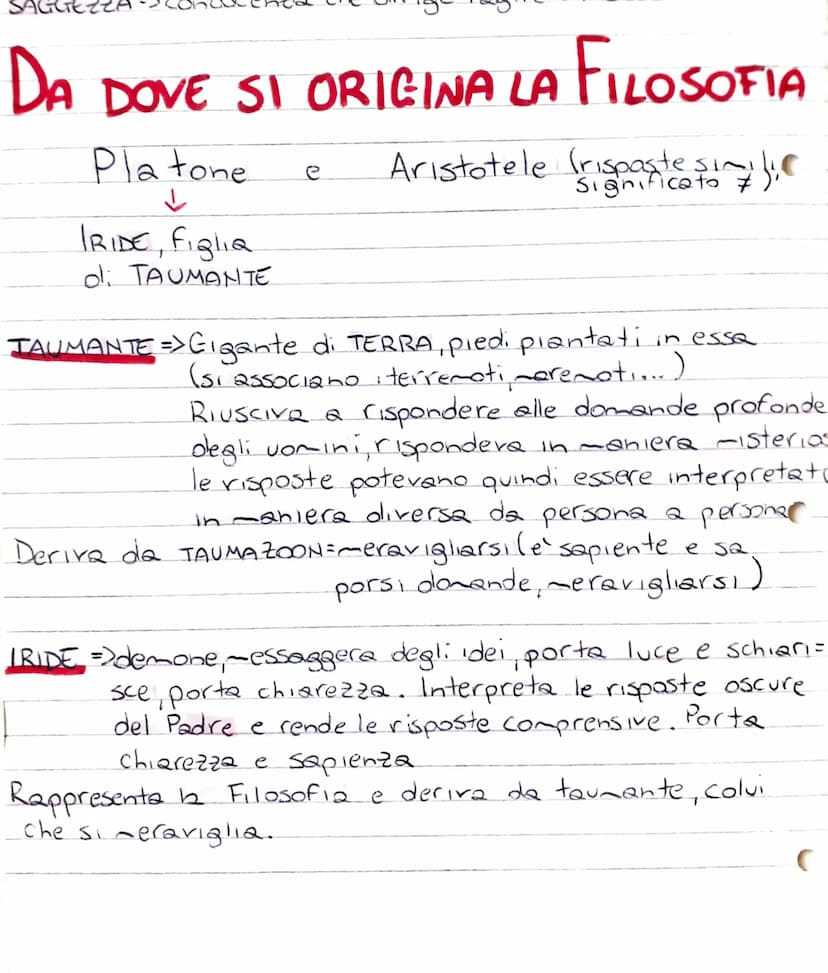 SAGGEZZA ->
DA DOVE SI ORIGINA LA FILOSOFIA
Platone e Aristotele (risposte simili,
significato ≠)
↓
IRIDE, figlia
di TAUMANTE
TAUMANTE => Gigante di TERRA, piedi piantati in essa
(si associano i terremoti, maremoti...)
Riusciva a rispondere alle domande profonde
degli uomini, rispondeva in maniera misterios
le risposte potevano quindi essere interpretat
in maniera diversa da persona a persona
Deriva da TAUMAZOON = meravigliarsi (è sapiente e sa
porsi domande, meravigliarsi)
IRIDE => demone, messaggera degli idei, porta luce e schiari=
sce, porta chiarezza. Interpreta le risposte oscure
del Padre e rende le risposte comprensive. Porta
chiarezza e sapienza
Rappresenta la Filosofia e deriva da taumante, colui
che si meraviglia.